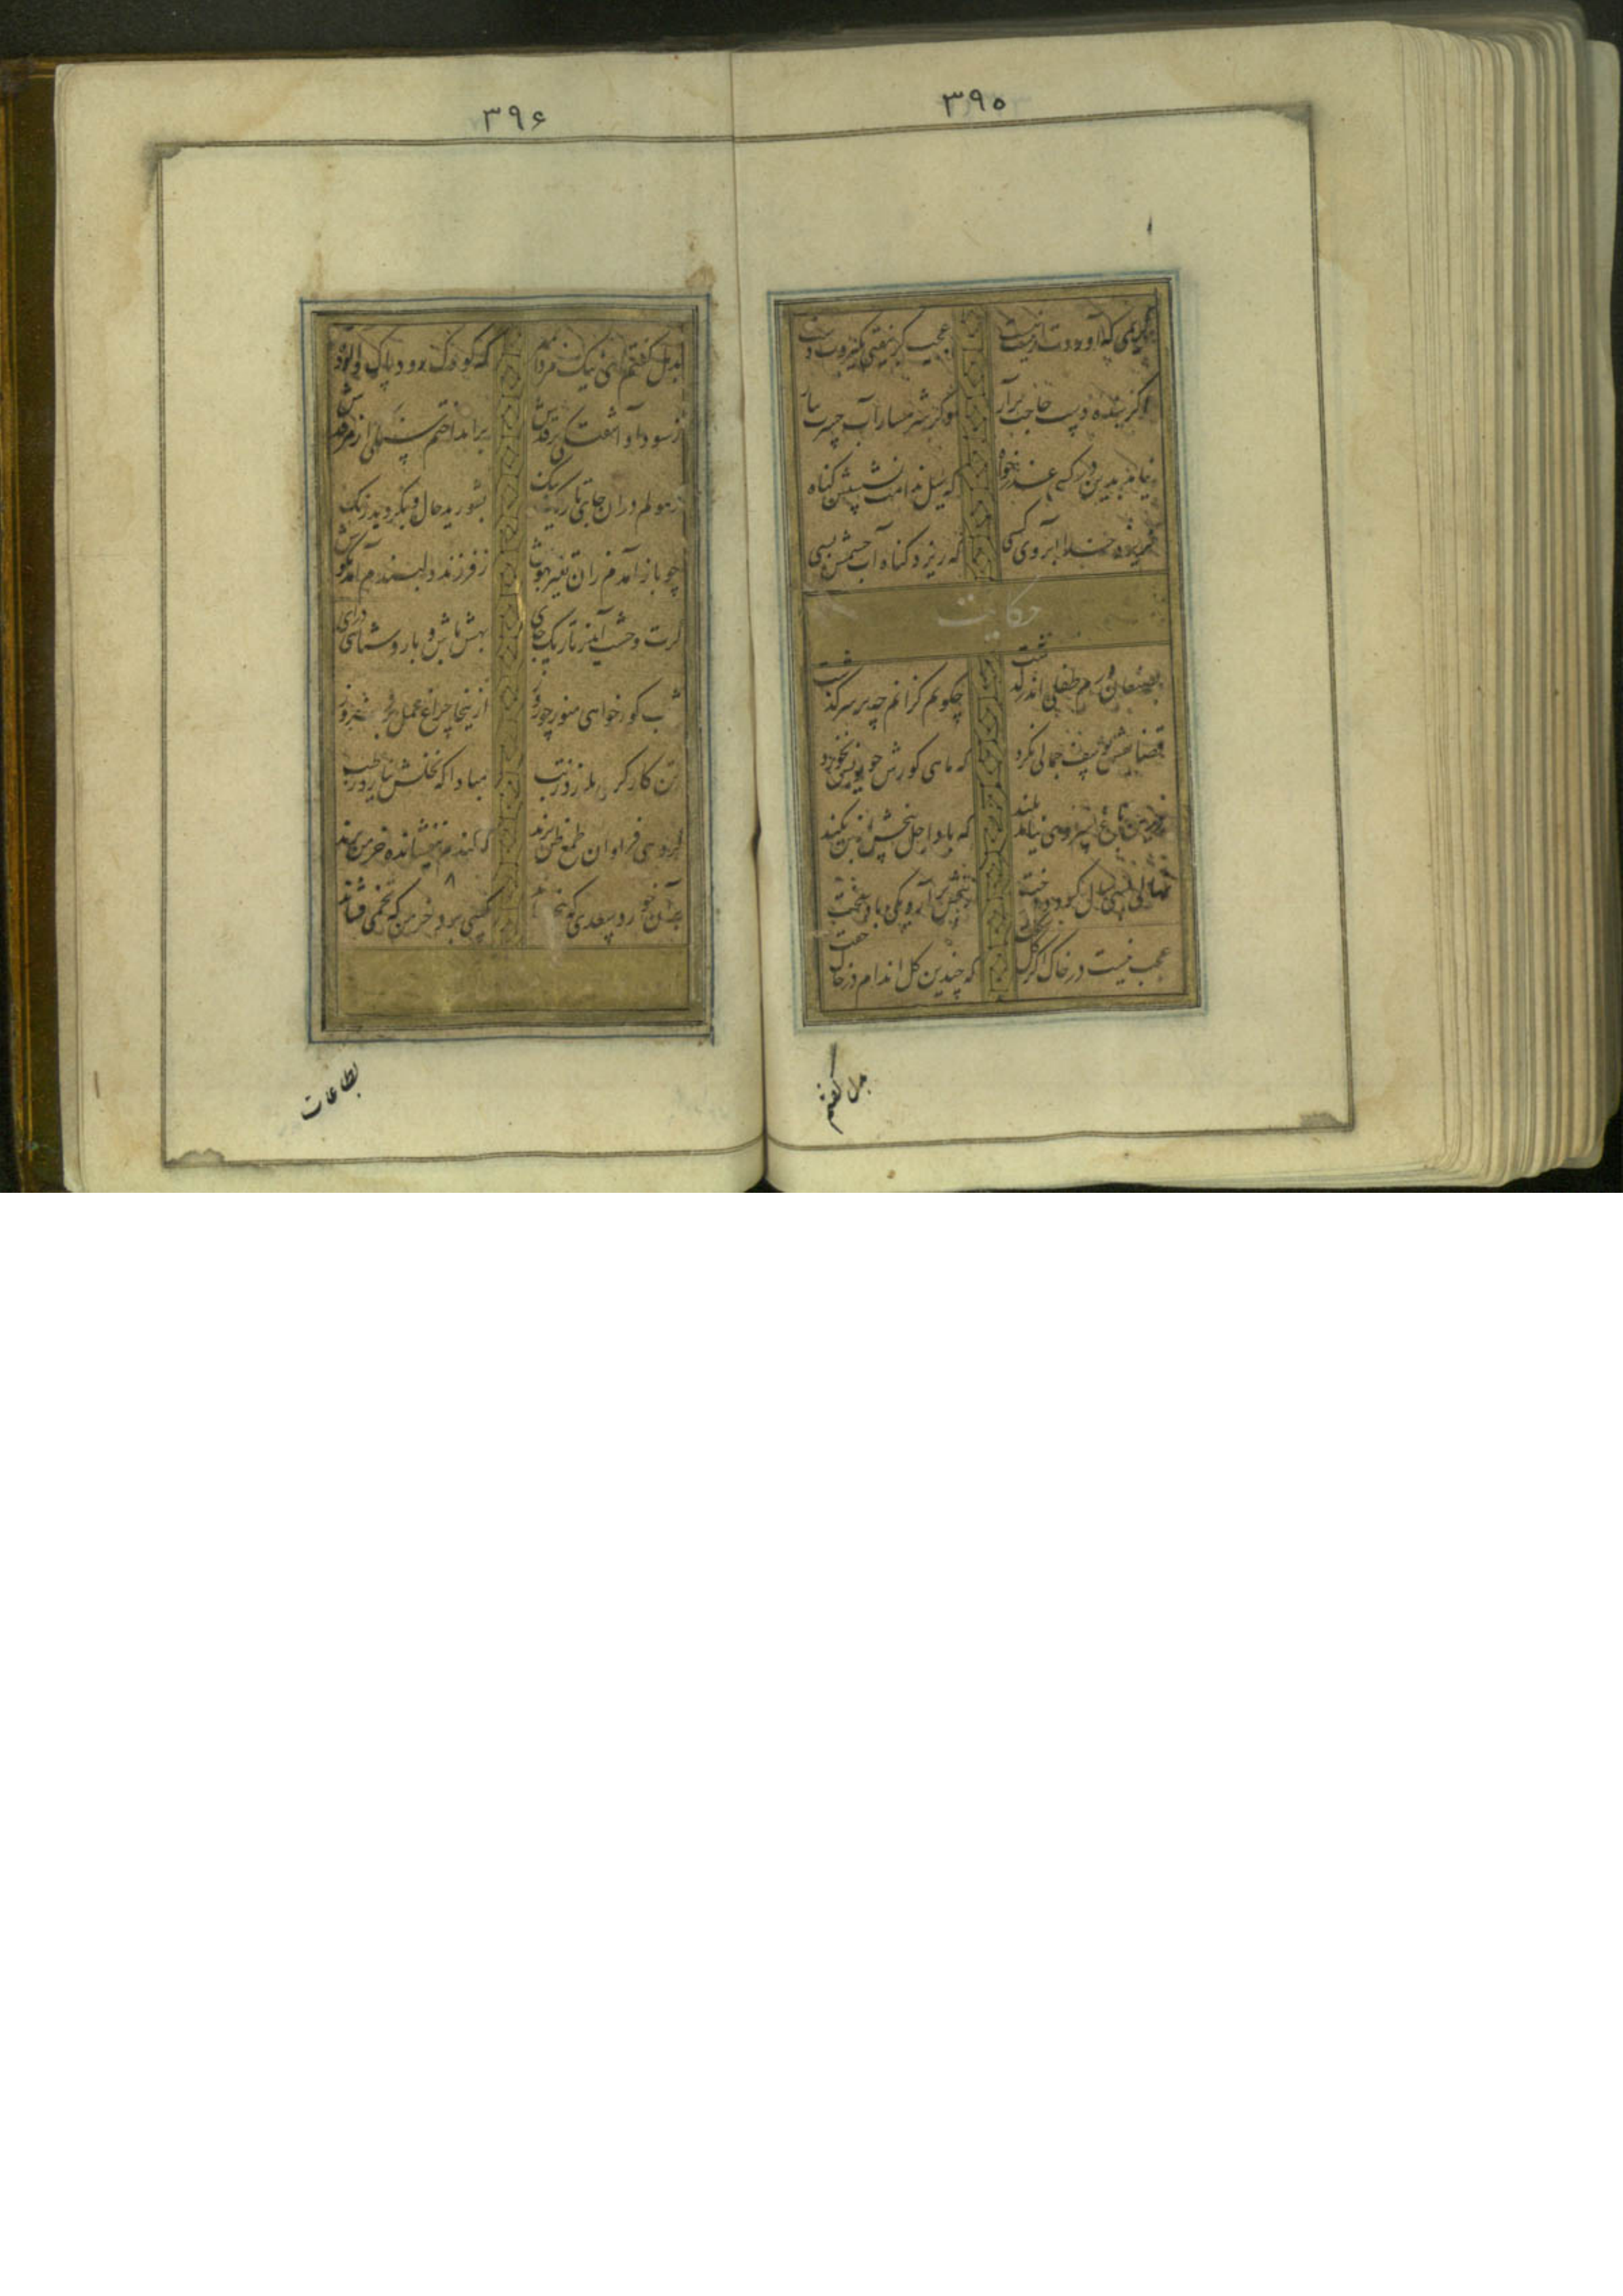 ۳۹۵
کریمی که آوردت از نیست هست عجب گر بیفتی نگیردت دست
اگر بنده دست حاجت برآر وگر شرمسار آب حسرت ببار
نیامد بدین در کسی عذرخواه که سیل ندامت نشستش گناه
نریزد خدا آبروی کسی که ریزد گناه آب چشمش بسی
حکایت
بصنعان درم طفلی اندر گذشت چگویم کزانم چه بر سر گذشت
قضا نقش یوسف جمالی نکرد که ماهی گورش چو یونس نخورد
درین باغ سروی نیامد بلند که باد اجل بیخش از بن نکند
نهالی بسی سال گردد درخت ز بیخش برآرد یکی باد سخت
عجب نیست در خاک اگر گل شکفت که چندین گل اندام در خاک خفت
بدل گفتم
۳۹۶
بدل گفتم ای ننگ مردان بمیر که کودک رود پاک و آلوده پیر
ز سودا و آشفتگی بر قدش برانداختم سنگی از مرقدش
ز هولم در آن جای تاریک تنگ بشورید حال و بگردید رنگ
چو باز آمدم زان تغیر بهوش ز فرزند دلبندم آمد بگوش
گرت وحشت آمد ز تاریک جای بهش باش و با روشنائی درآی
شب گور خواهی منور چو روز ازینجا چراغ عمل برفروز
تن کارکن می بلرزد ز تب مبادا که نخلش نیارد رطب
گروهی فراوان طمع ظن برند که گندم نیفشانده خرمن برند
بر آن خورد سعدی که بیخی نشاند کسی برد خرمن که تخمی فشاند
بطاعات